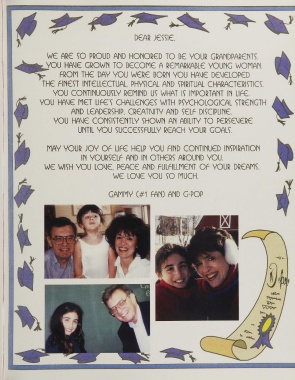 DEAR JESSIE,
WE ARE SO PROUD AND HONORED TO BE YOUR GRANDPARENTS.
YOU HAVE GROWN TO BECOME A REMARKABLE YOUNG WOMAN.
FROM THE DAY YOU WERE BORN YOU HAVE DEVELOPED
THE FINEST INTELLECTUAL, PHYSICAL AND SPIRITUAL CHARACTERISTICS.
YOU CONTINUOUSLY REMIND US WHAT IS IMPORTANT IN LIFE.
YOU HAVE MET LIFE'S CHALLENGES WITH PSYCHOLOGICAL STRENGTH
AND LEADERSHIP, CREATIVITY AND SELF DISCIPLINE.
YOU HAVE CONSISTENTLY SHOWN AN ABILITY TO PERSEVERE
UNTIL YOU SUCCESSFULLY REACH YOUR GOALS.
MAY YOUR JOY OF LIFE HELP YOU FIND CONTINUED INSPIRATION
IN YOURSELF AND IN OTHERS AROUND YOU.
WE WISH YOU LOVE, PEACE AND FULFILLMENT OF YOUR DREAMS.
WE LOVE YOU SO MUCH.
GAMMY (#1 FAN) AND G-POP